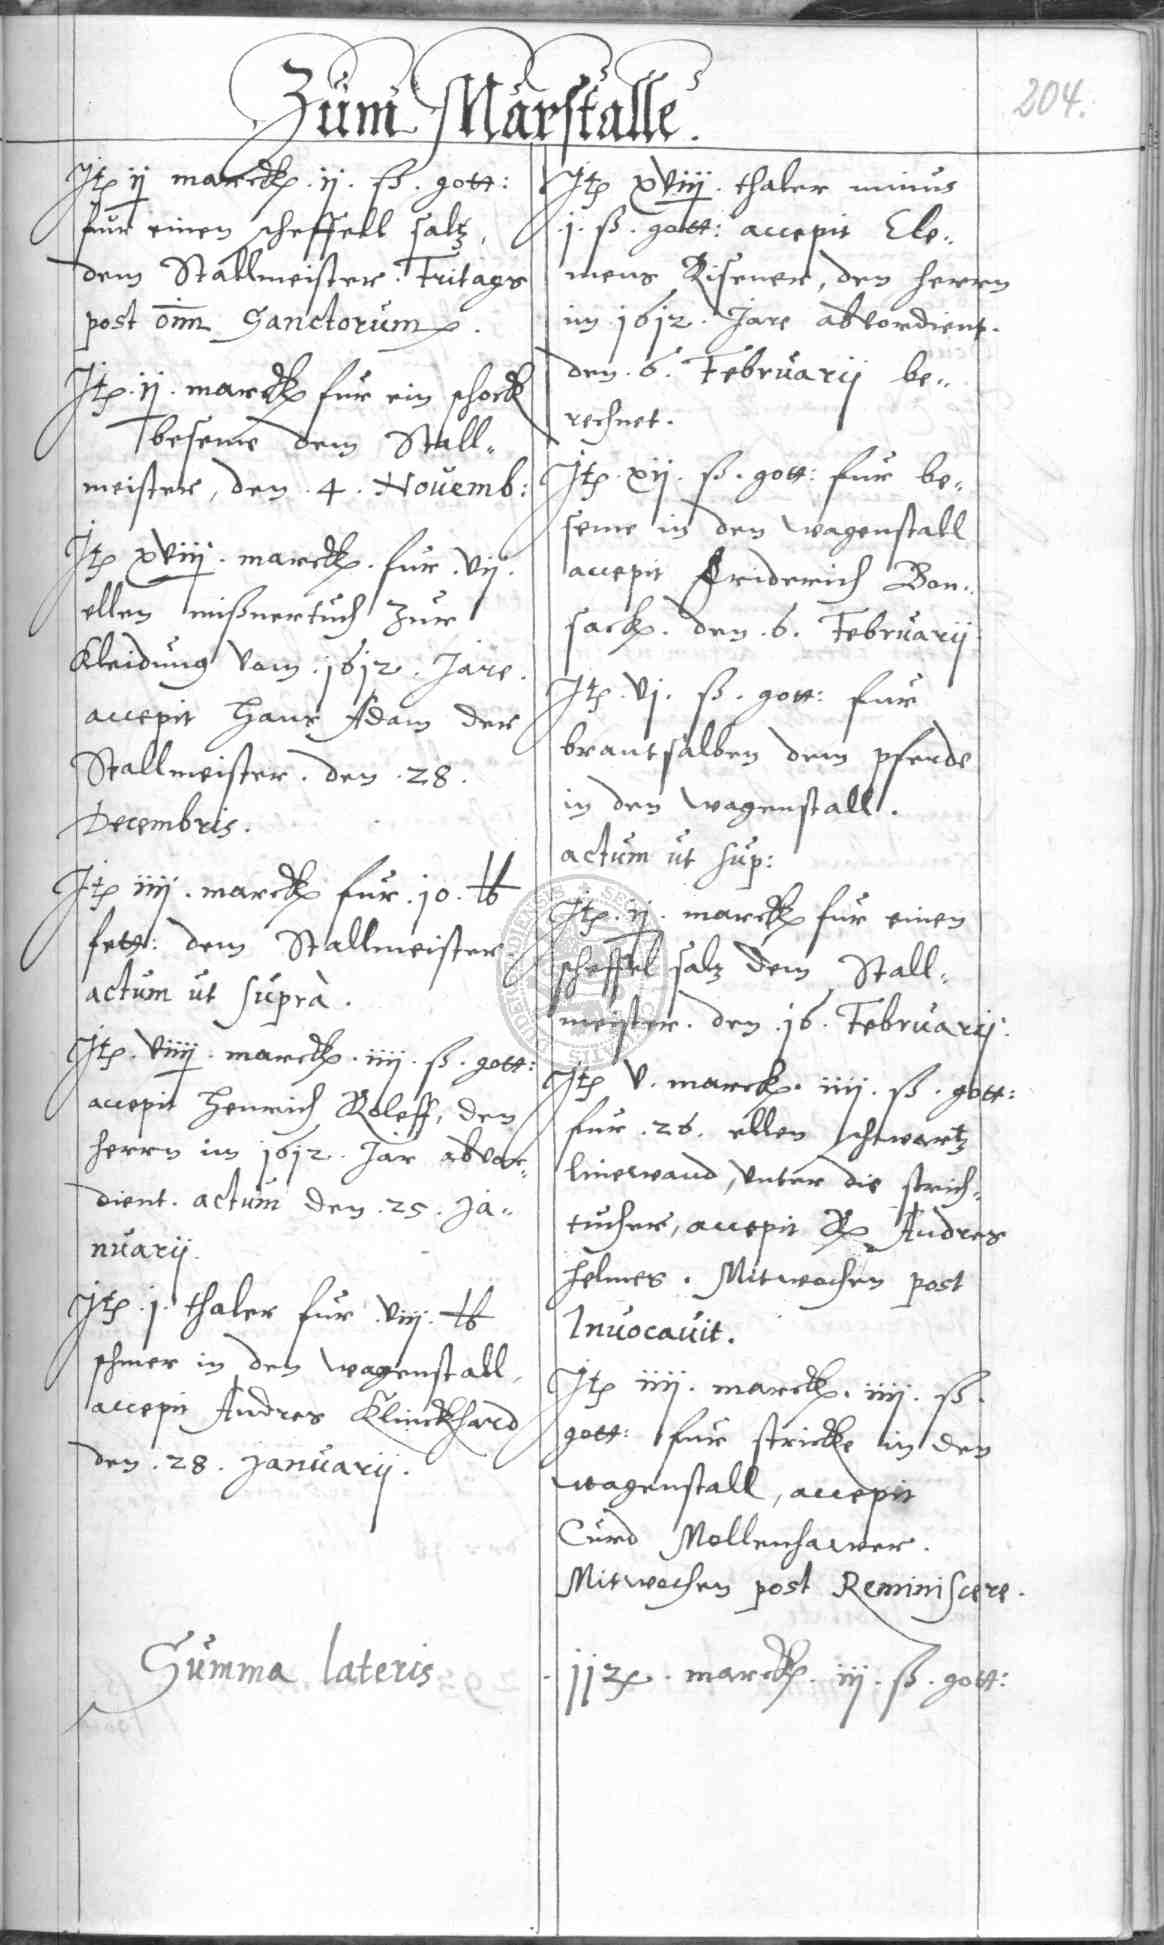 Zum Marstalle.
204.
Itp ij marckp. ij. ß. gott:
fur einen scheffell saltz,
dem Stallmeister. Fritags
post om̄ Sanctorum.
Itp. ij. marckp fur ein schock
beseme dem Stall„
meister, den. 4. Novemb:
Itp xviij. marckp. fur. vij.
ellen mißnertuch zur
Kleidung vom. 1612. Jare.
accepit Hans Adam der
Stallmeister. den. 28.
Decembris.
Itp iiij. marckp fur. 10. ℔
fett: dem Stallmeister.
actum ut supra.
Itp. viiij. marckp. iiij. ß. gott:
accepit Henrich Roleff, den
herrn im 1612. Jar abvor„
dient. actum den. 25. Ja„
nuarij.
Itp. j. thaler fur. viij. ℔
schmer in den wagenstall,
accepit Andres Klinckhard
den. 28. Januarij.
Itp xviij. thaler minus
j. ß. gott: accepit Cle„
mens Risener, den herrn
im. 1612. Jare abvordient.
den. 6. Februarij be„
rechnet.
Itp. xij. ß. gott: fur be„
seme in den wagenstall
accepit Friderich Bon„
sack. den. 6. Februarij
Itp. vj. ß. gott: fur
brantsalben dem pferde
in den wagenstall.
actum ut sup:
Itp. ij. marckp fur einen
scheffel saltz dem Stall„
meister. den. 16. Februarij.
Itp v. marck. iiij. ß. gott:
fur. 26. ellen schwartz
linewand, unter die strich„
tucher, accepit Andres
Helmes. Mitwochen post
Invocavit.
Itp iiij. marckp. iiij. ß.
gott: fur stricke in den
wagenstall, accepit
Curd Mollenhawer.
Mitwochen post Reminiscere.
Summa lateris
112. marckp. iij. ß. gott: